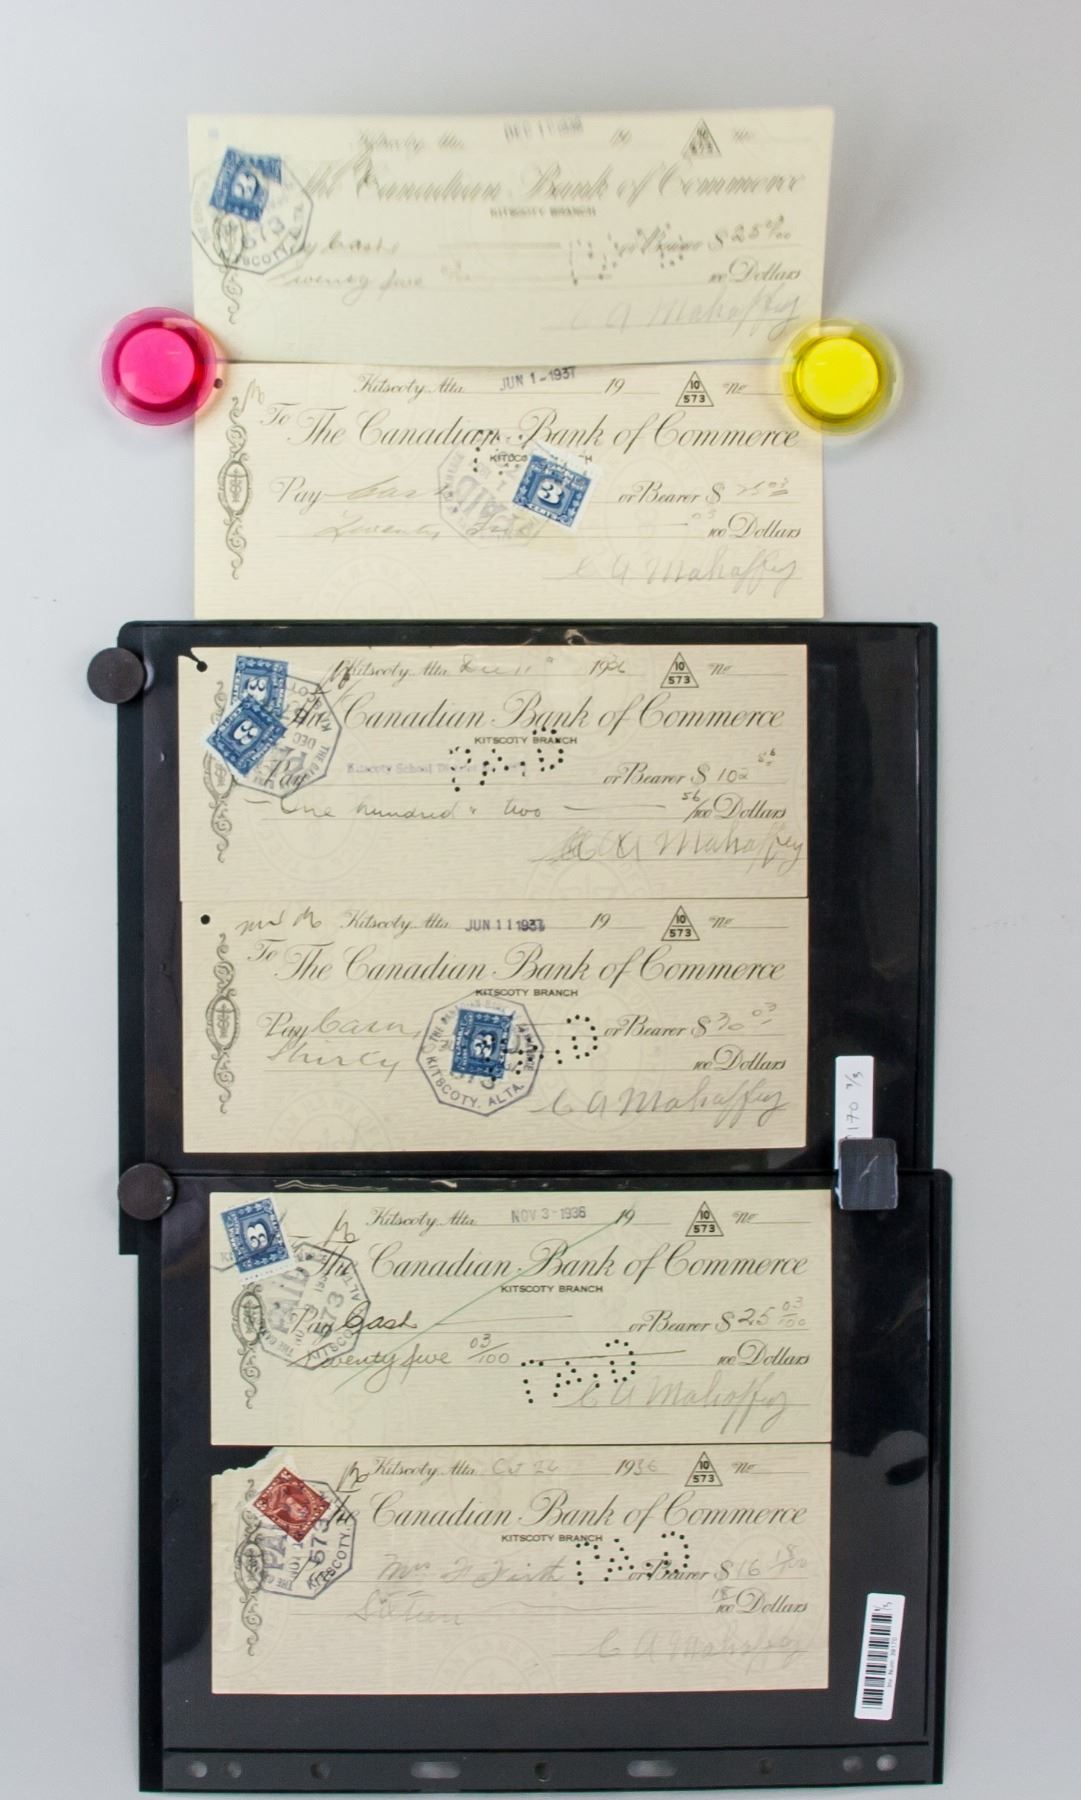 Kitscoty, Alta. DEC 1 1936 19 10/573 No
The Canadian Bank of Commerce
KITSCOTY BRANCH
3
Cash or Bearer $ 25
573
KITSCOTY, ALTA.
Twenty five 100 Dollars
C A Mahaffey
Kitscoty, Alta. JUN 1 - 1937 19 10/573 No
To The Canadian Bank of Commerce
Pay Cash or Bearer $ 25 03
3 CENTS
PAID
Twenty Five 03 100 Dollars
C A Mahaffey
Kitscoty, Alta. Dec 11 1936 10/573 No
Canadian Bank of Commerce
KITSCOTY BRANCH
3
3
DEC
Pay Kitscoty School District or Bearer $ 102 56
PAID
One hundred & two 56/100 Dollars
C A Mahaffey
Kitscoty, Alta. JUN 11 1937 19 10/573 No
To The Canadian Bank of Commerce
KITSCOTY BRANCH
Pay Cash or Bearer $ 30 03
THE CANADIAN BANK OF COMMERCE
3
573
KITSCOTY, ALTA.
Thirty 100 Dollars
C A Mahaffey
170 3/3
Kitscoty, Alta. NOV 3 - 1936 19 10/573 No
The Canadian Bank of Commerce
KITSCOTY BRANCH
3
PAID
573
KITSCOTY ALTA.
Pay Cash or Bearer $ 25 03/100
Twenty five 03/100 100 Dollars
PAID
C A Mahaffey
Kitscoty, Alta. Oct 26 1936 10/573 No
The Canadian Bank of Commerce
KITSCOTY BRANCH
573
KITSCOTY,
Mrs F Firth or Bearer $ 16 18/100
PAID
Sixteen 18/100 Dollars
C A Mahaffey